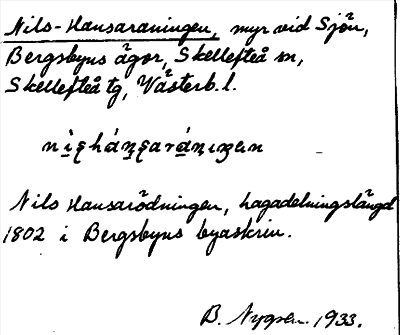 Nils-Hansaraningen, myr vid Sjön,
Bergsbyns ägor, Skellefteå sn,
Skellefteå tg, Västerb. l.
Nils Hansarödningen, hagadelningslängd
1802 i Bergsbyns byaskrin.
B. 1933.